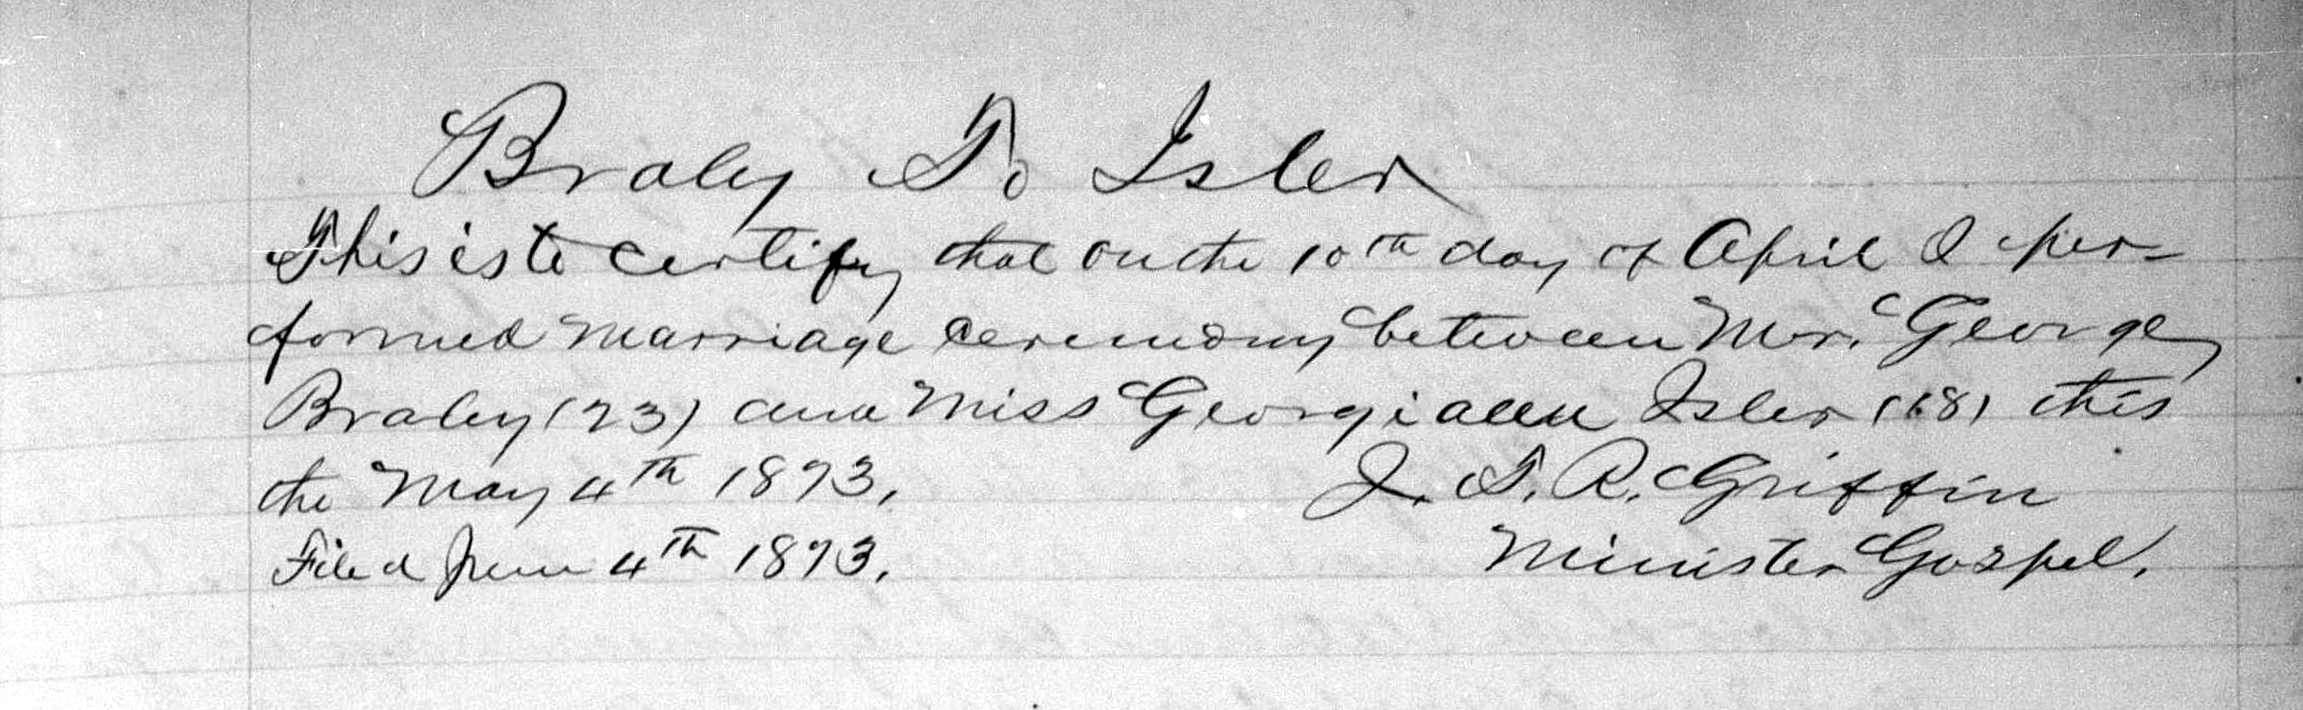 Braley To Isler
This is to certify that on the 10th day of April I per-
formed Marriage ceremony between Mr. George
Braley (23) and Miss Georgiann Isler (18) this
the May 4th 1893.
J. T. R. Griffin
Filed June 4th 1893.
Minister Gospel.